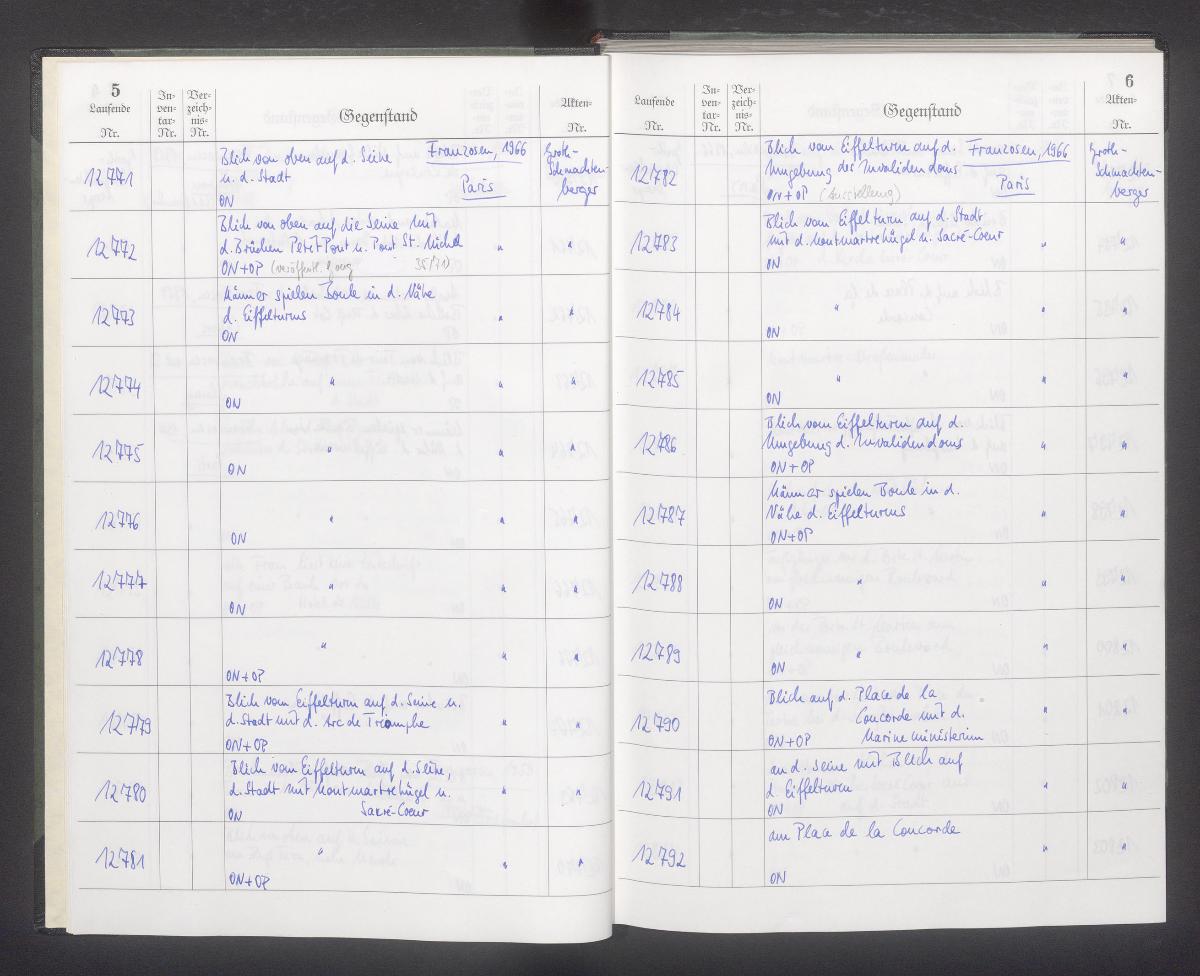 5
Laufende
Nr.
In-
ven-
tar-
Nr.
Ver-
zeich-
nis-
Nr.
Gegenstand
Akten-
Nr.
12771
Blick von oben auf d. Seine
u. d. Stadt
ON
Franzosen, 1966
Paris
Groth-
Schmachten-
berger
12772
Blick von oben auf die Seine mit
d. Brücken Petit Pont u. Pont St. Michel
ON+OP (veröffentl. 35/71)
" "
12773
Männer spielen Boule in d. Nähe
d. Eiffelturms
ON
" "
12774
" " "
ON
12775
" " "
ON
12776
" " "
ON
12777
" " "
ON
12778
" " "
ON+OP
12779
Blick vom Eiffelturm auf d. Seine u.
d. Stadt mit d. Arc de Triomphe
ON+OP
" "
12780
Blick vom Eiffelturm auf d. Seine,
d. Stadt mit Montmartrehügel u.
ON Sacré-Coeur
" "
12781
" " "
ON+OP
6
Laufende
Nr.
In-
ven-
tar-
Nr.
Ver-
zeich-
nis-
Nr.
Gegenstand
Akten-
Nr.
12782
Blick vom Eiffelturm auf d.
Umgebung des Invalidendoms
ON+OP (Ausstellung)
Franzosen, 1966
Paris
Groth-
Schmachten-
berger
12783
Blick vom Eiffelturm auf d. Stadt
mit d. Montmartrehügel u. Sacré-Coeur
ON
" "
12784
" " "
ON
12785
" " "
ON
12786
Blick vom Eiffelturm auf d.
Umgebung d. Invalidendoms
ON+OP
" "
12787
Männer spielen Boule in d.
Nähe d. Eiffelturms
ON+OP
" "
12788
" " "
ON
12789
" " "
ON+OP
12790
Blick auf d. Place de la
Concorde mit d.
ON+OP Marineministerium
" "
12791
an d. Seine mit Blick auf
d. Eiffelturm
ON
" "
12792
am Place de la Concorde
ON
" "